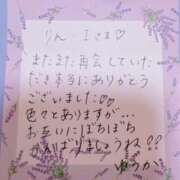 りん-Iさま♡
またまた再会していた
だき本当にありがとう
ございました♡
色々とありますが...
お互いにぼちぼち
がんばりましょうね??
ゆうか